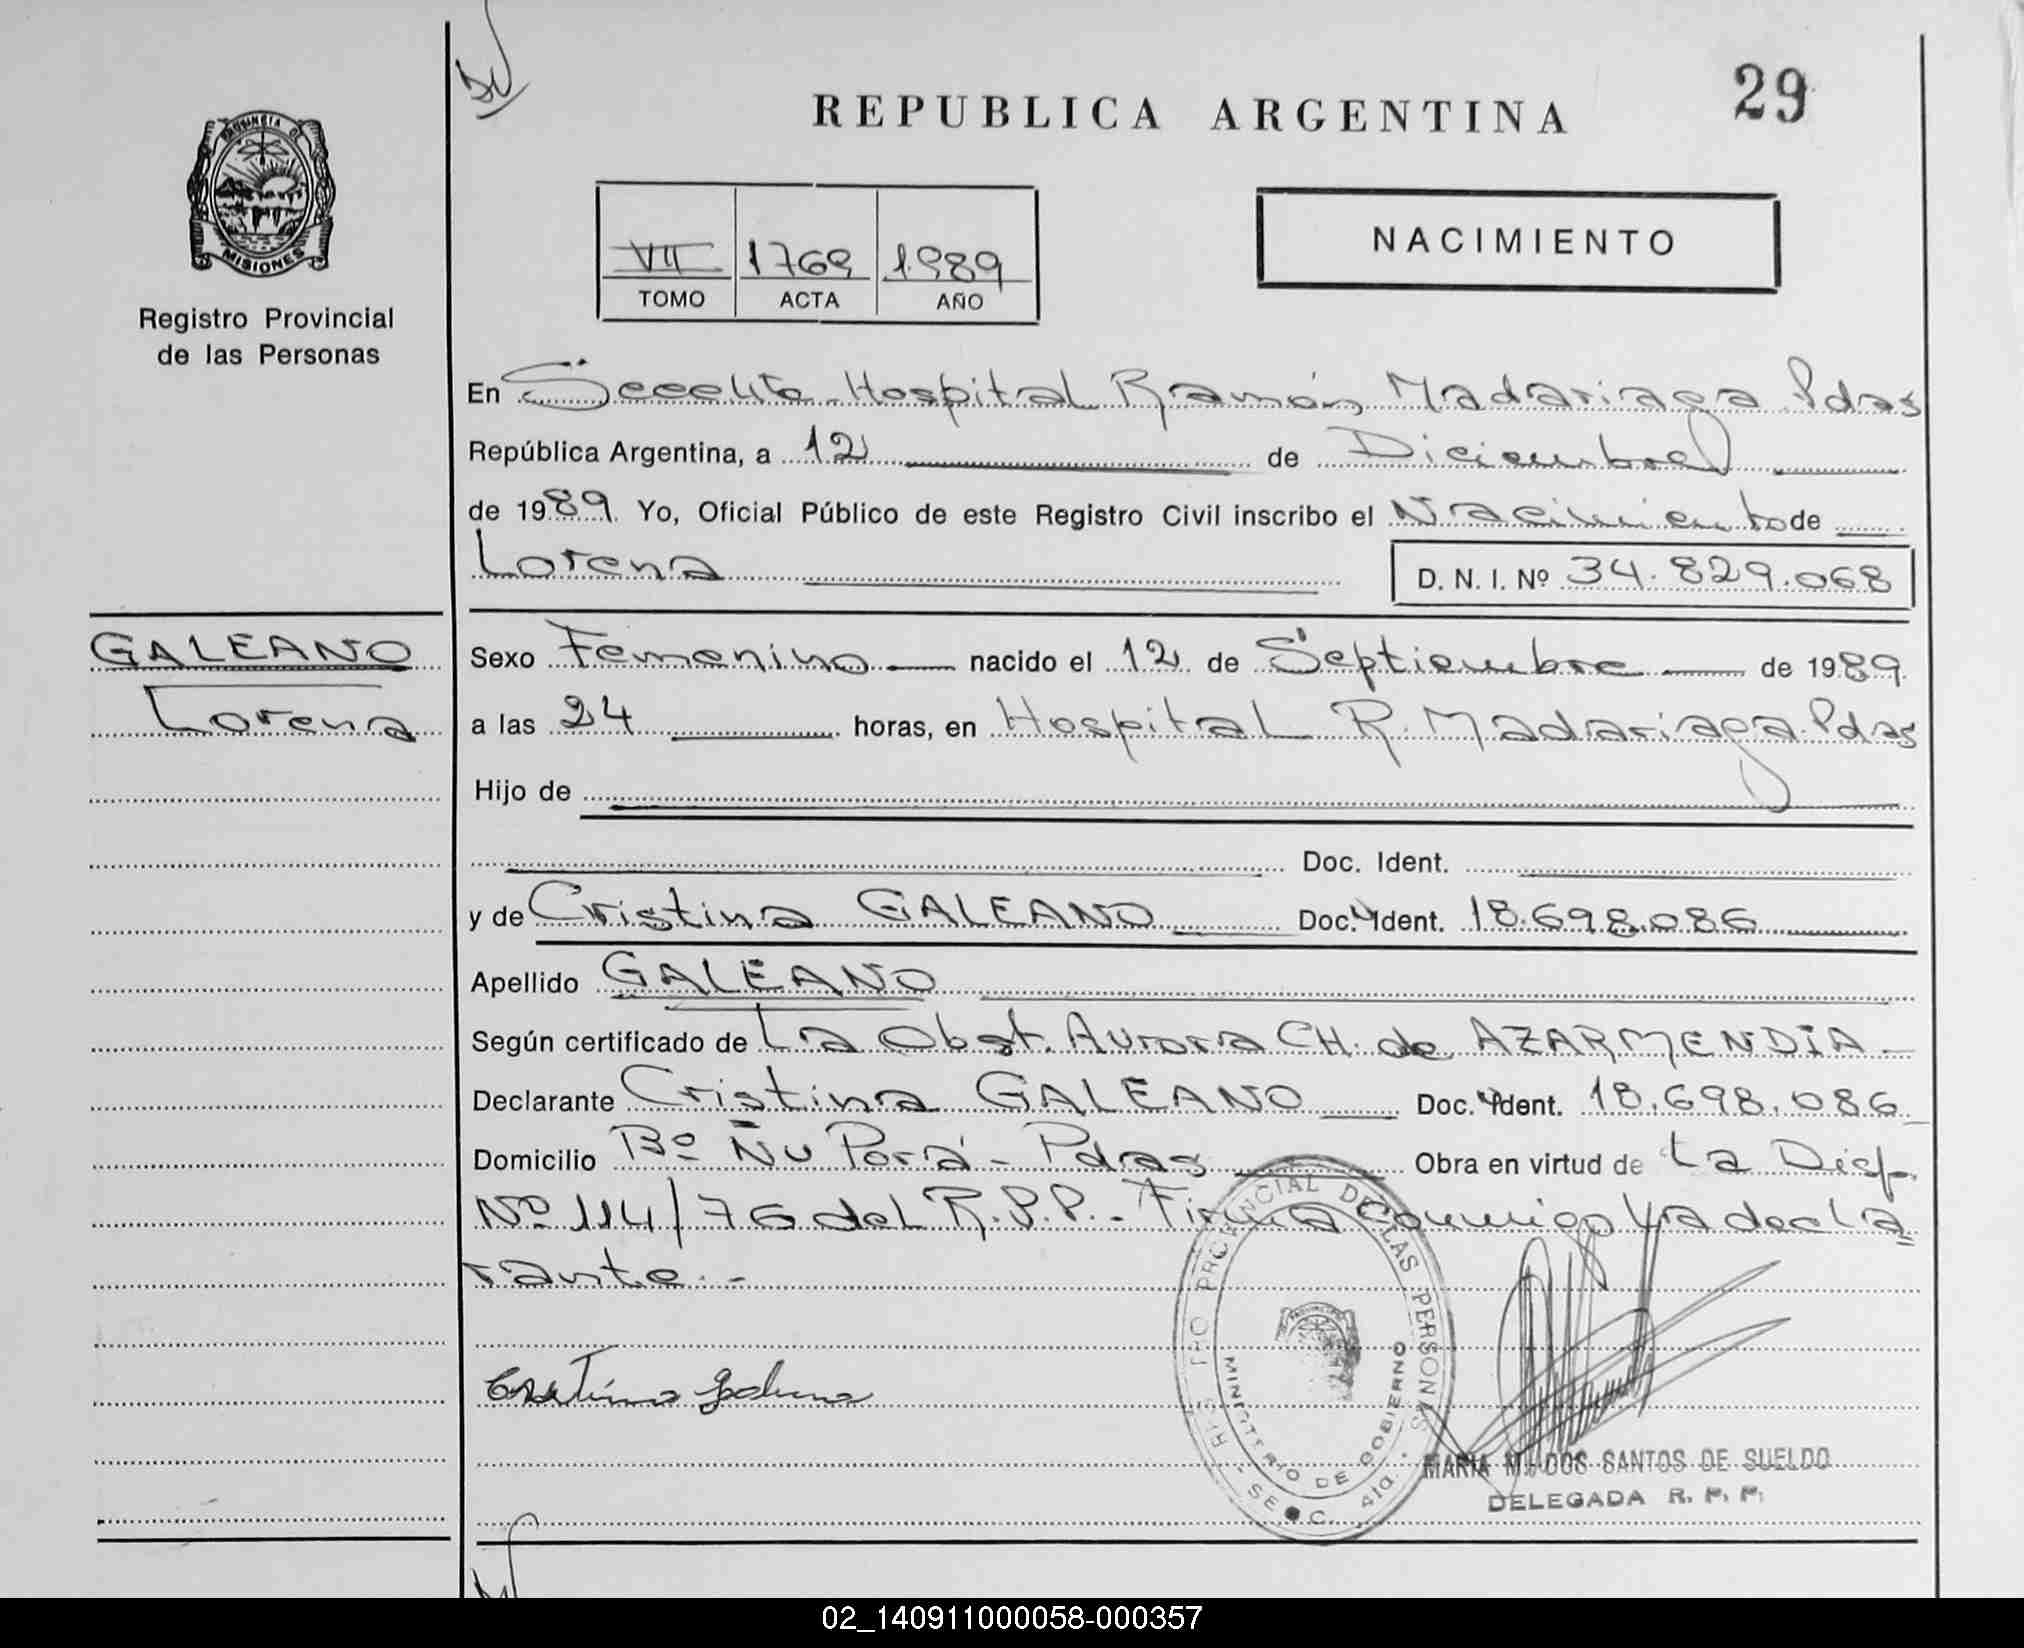 29
REPUBLICA ARGENTINA
PROVINCIA DE
MISIONES
Registro Provincial
de las Personas
VII 1769 1989
TOMO ACTA AÑO
NACIMIENTO
En Hospital Ramón Madariaga Pdas
República Argentina, a 12 de Diciembre
de 1989 Yo, Oficial Público de este Registro Civil inscribo el Nacimiento de
Lorena D. N. I. Nº 34.829.068
GALEANO
Lorena
Sexo Femenino nacido el 12 de Septiembre de 1989
a las 24 horas, en Hospital R. Madariaga Pdas
Hijo de
Doc. Ident.
y de Cristina GALEANO Doc. Ident. 18.698.086
Apellido GALEANO
Según certificado de La Obst. Aurora CH. de AZARMENDIA
Declarante Cristina GALEANO Doc. Ident. 18.698.086
Domicilio Bº Ñu Porá - Pdas Obra en virtud de La Disp.
Nº 114/76 del R.P.P. - Firma conmigo la decla
rante. -
Cristina Galeano
REGISTRO PROVINCIAL DE LAS PERSONAS
MINISTERIO DE GOBIERNO
MARIA M. DOS SANTOS DE SUELDO
DELEGADA R. P. P.
02_140911000058-000357